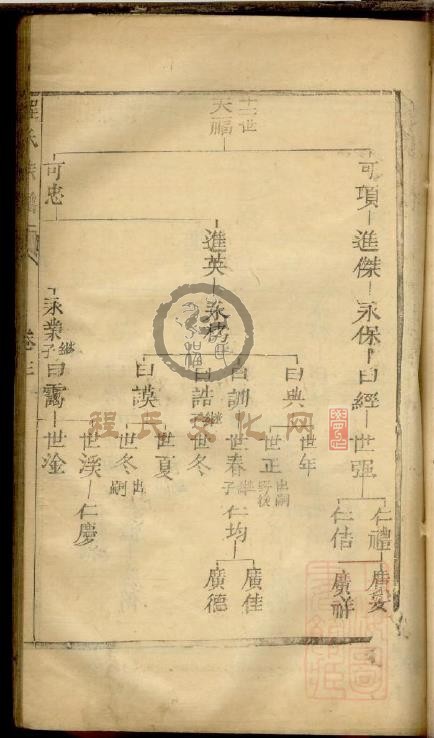 十一世
天福
可項 進傑 永保 曰經 世强
仁禮
仁佶 廣祥
可忠
進英
曰典
世年
世正 出嗣
曰訓 世春 繼子 仁均
廣佳
廣德
曰誥 繼
世冬
世夏
曰謨
世冬 出嗣
永業 繼子 曰靄
世溪 仁慶
世淦
程氏文化网
卷三